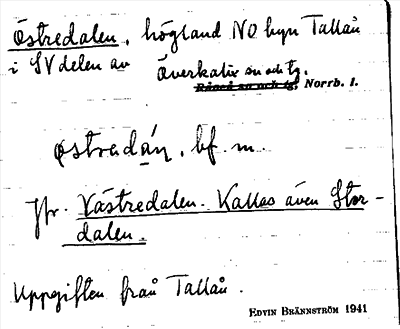 Östredalen, högland NO byn Tallån
i SV delen av Överkalix sn och tg.
Råneå sn och tg, Norrb. l.
østredán, bf. m.
Jfr. Västredalen. Kallas även Stor-
dalen.
Uppgiften från Tallån.
EDVIN BRÄNNSTRÖM 1941